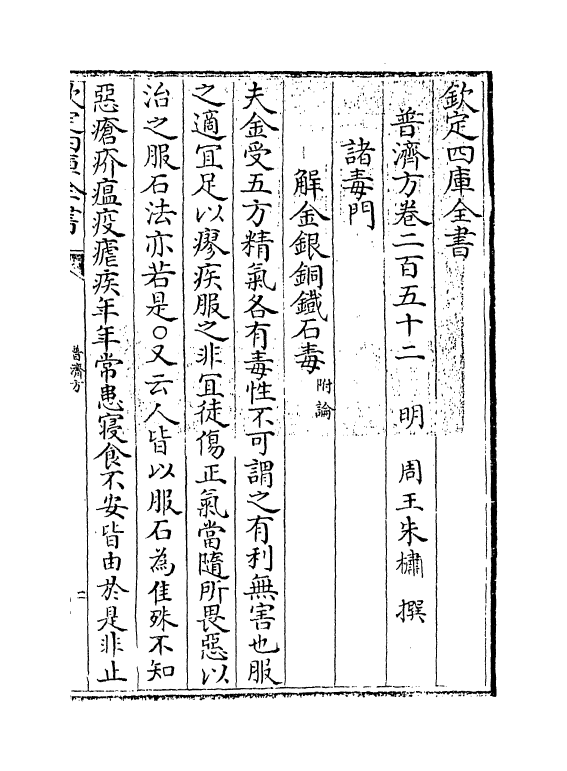 欽定四庫全書
普濟方卷二百五十二　明　周王朱橚　撰
諸毒門
解金銀銅鐵石毒附論
夫金受五方精氣各有毒性不可謂之有利無害也服
之適宜足以瘳疾服之非宜徒傷正氣當隨所畏惡以
治之服石法亦若是〇又云人皆以服石為佳殊不知
惡瘡疥瘟疫瘧疾年年常患寢食不安皆由於是非止
欽定四庫全書
普濟方